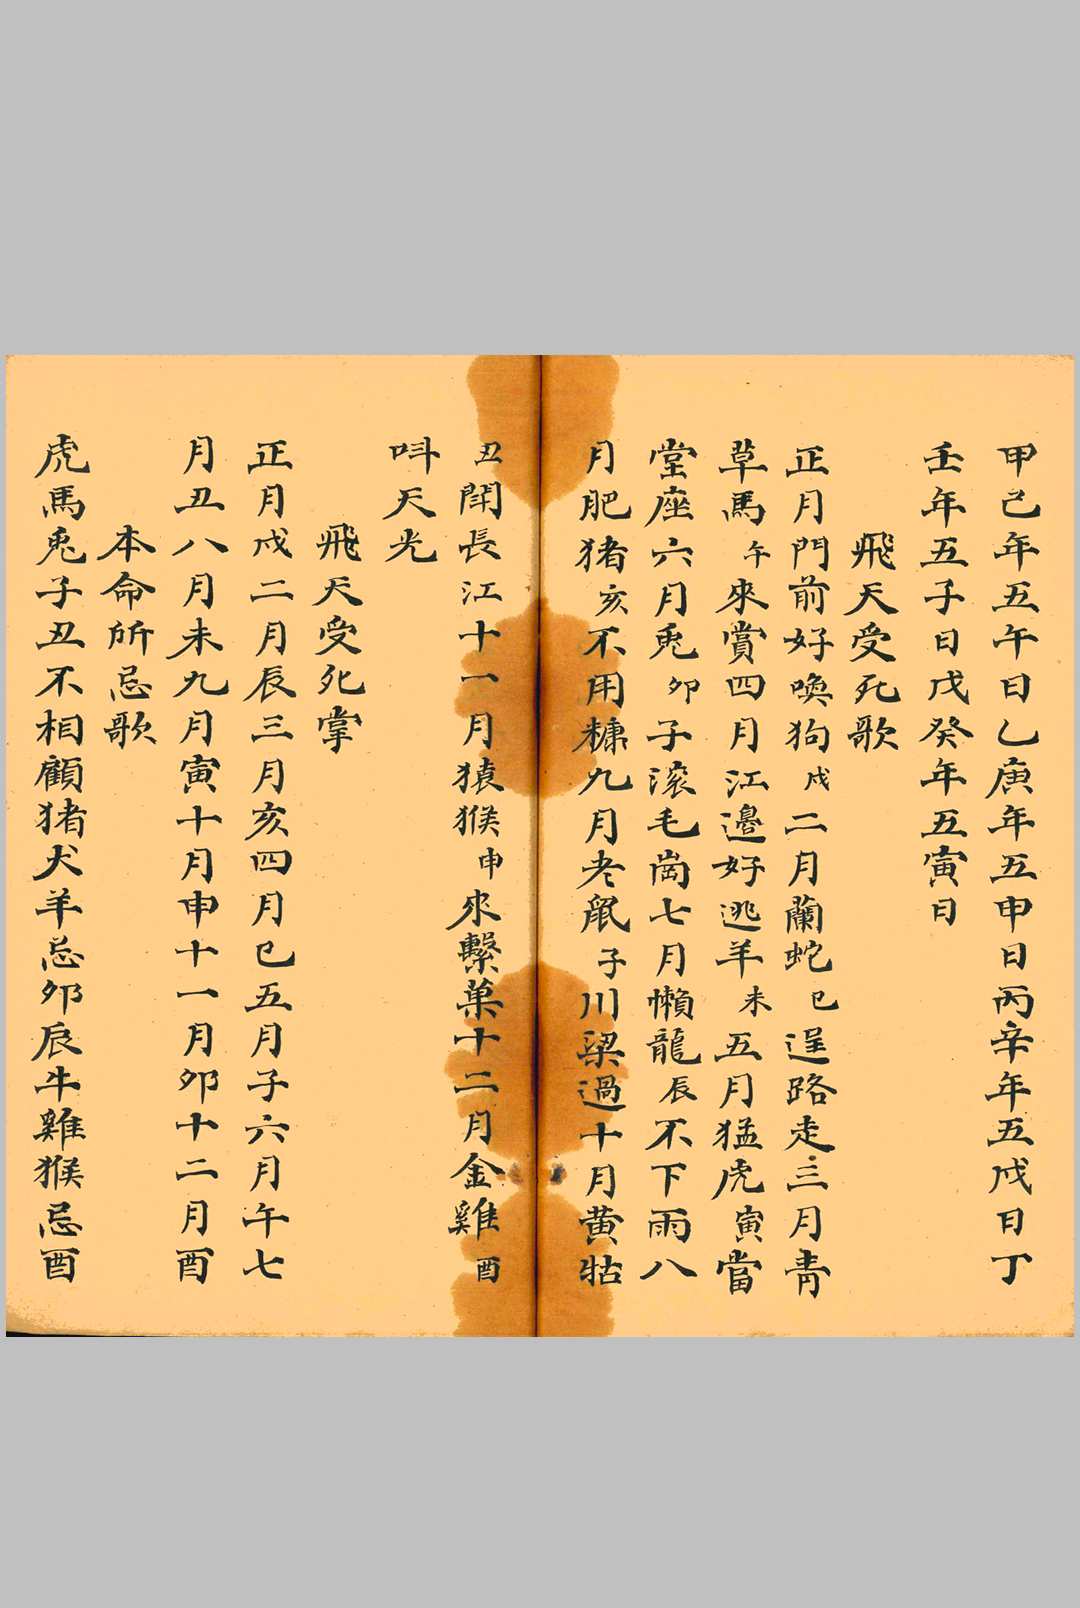 甲己年五午日乙庚年五申日丙辛年五戌日丁
壬年五子日戊癸年五寅日
飛天受死歌
正月門前好喚狗戌二月蘭蛇巳逞路走三月青
草馬午來賞四月江邉好逃羊未五月猛虎寅當
堂座六月兎卯子滚毛崗七月懶龍辰不下雨八
月肥猪亥不用糠九月老鼠子川梁過十月黄牯
丑閗長江十一月猿猴申來繫菓十二月金雞酉
呌天光
飛天受死掌
正月戌二月辰三月亥四月巳五月子六月午七
月丑八月未九月寅十月申十一月卯十二月酉
本命所忌歌
虎馬兎子丑不相顧猪犬羊忌卯辰牛雞猴忌酉